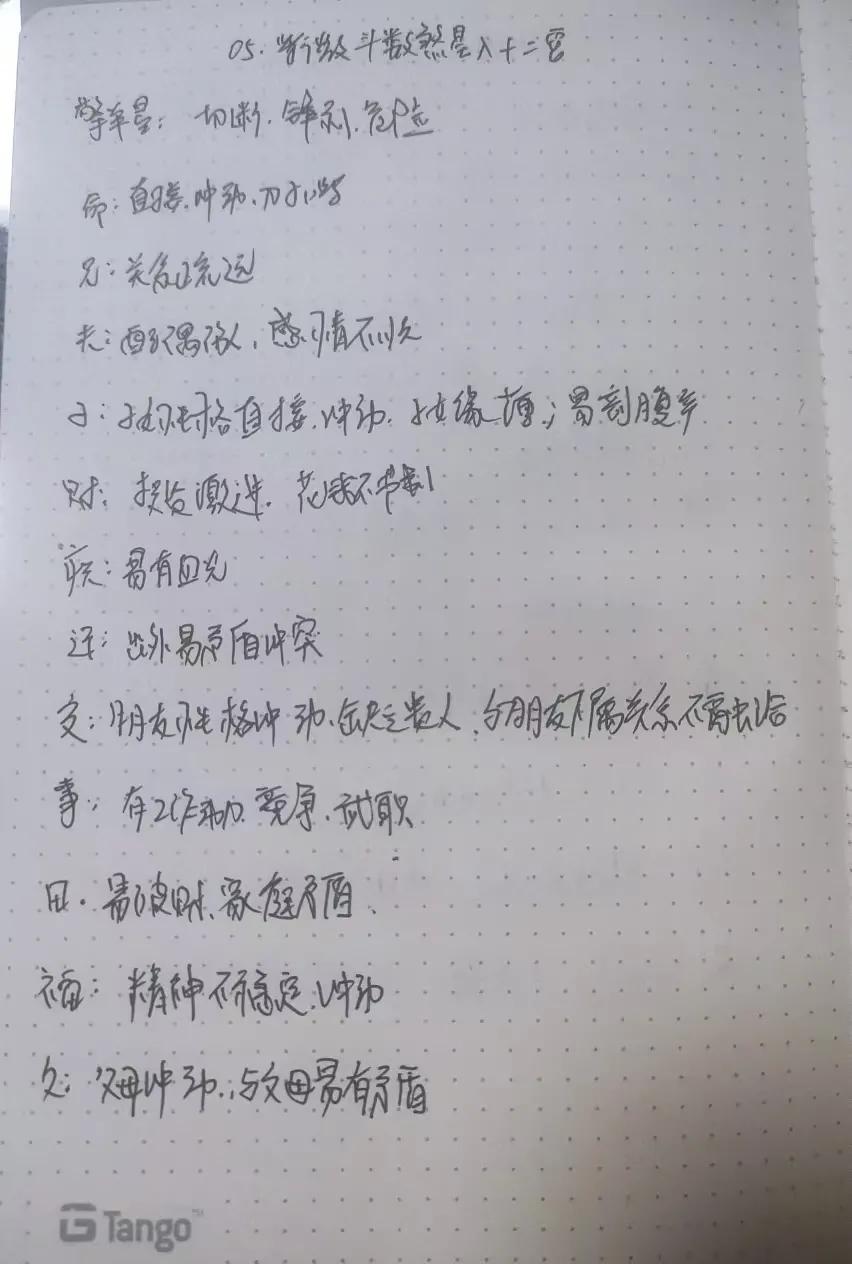 05. 紫微斗数煞星入十二宫
擎羊星：切断、锋利、危险
命：直接、冲动、刀子嘴
兄：关系疏远
夫：配偶、感情不以久
子：子女性格直接、冲动、子女缘薄；易剖腹产
财：投资激进、花钱不节制
疾：易有血光
迁：出外易矛盾冲突
交：朋友性格冲动、缺乏贵人、与朋友下属关系不融洽
事：有工作动力、竞争、武职
田：易破财、家庭矛盾、
福：精神不稳定、冲动
父：父母冲动、与父母易有矛盾
Tango